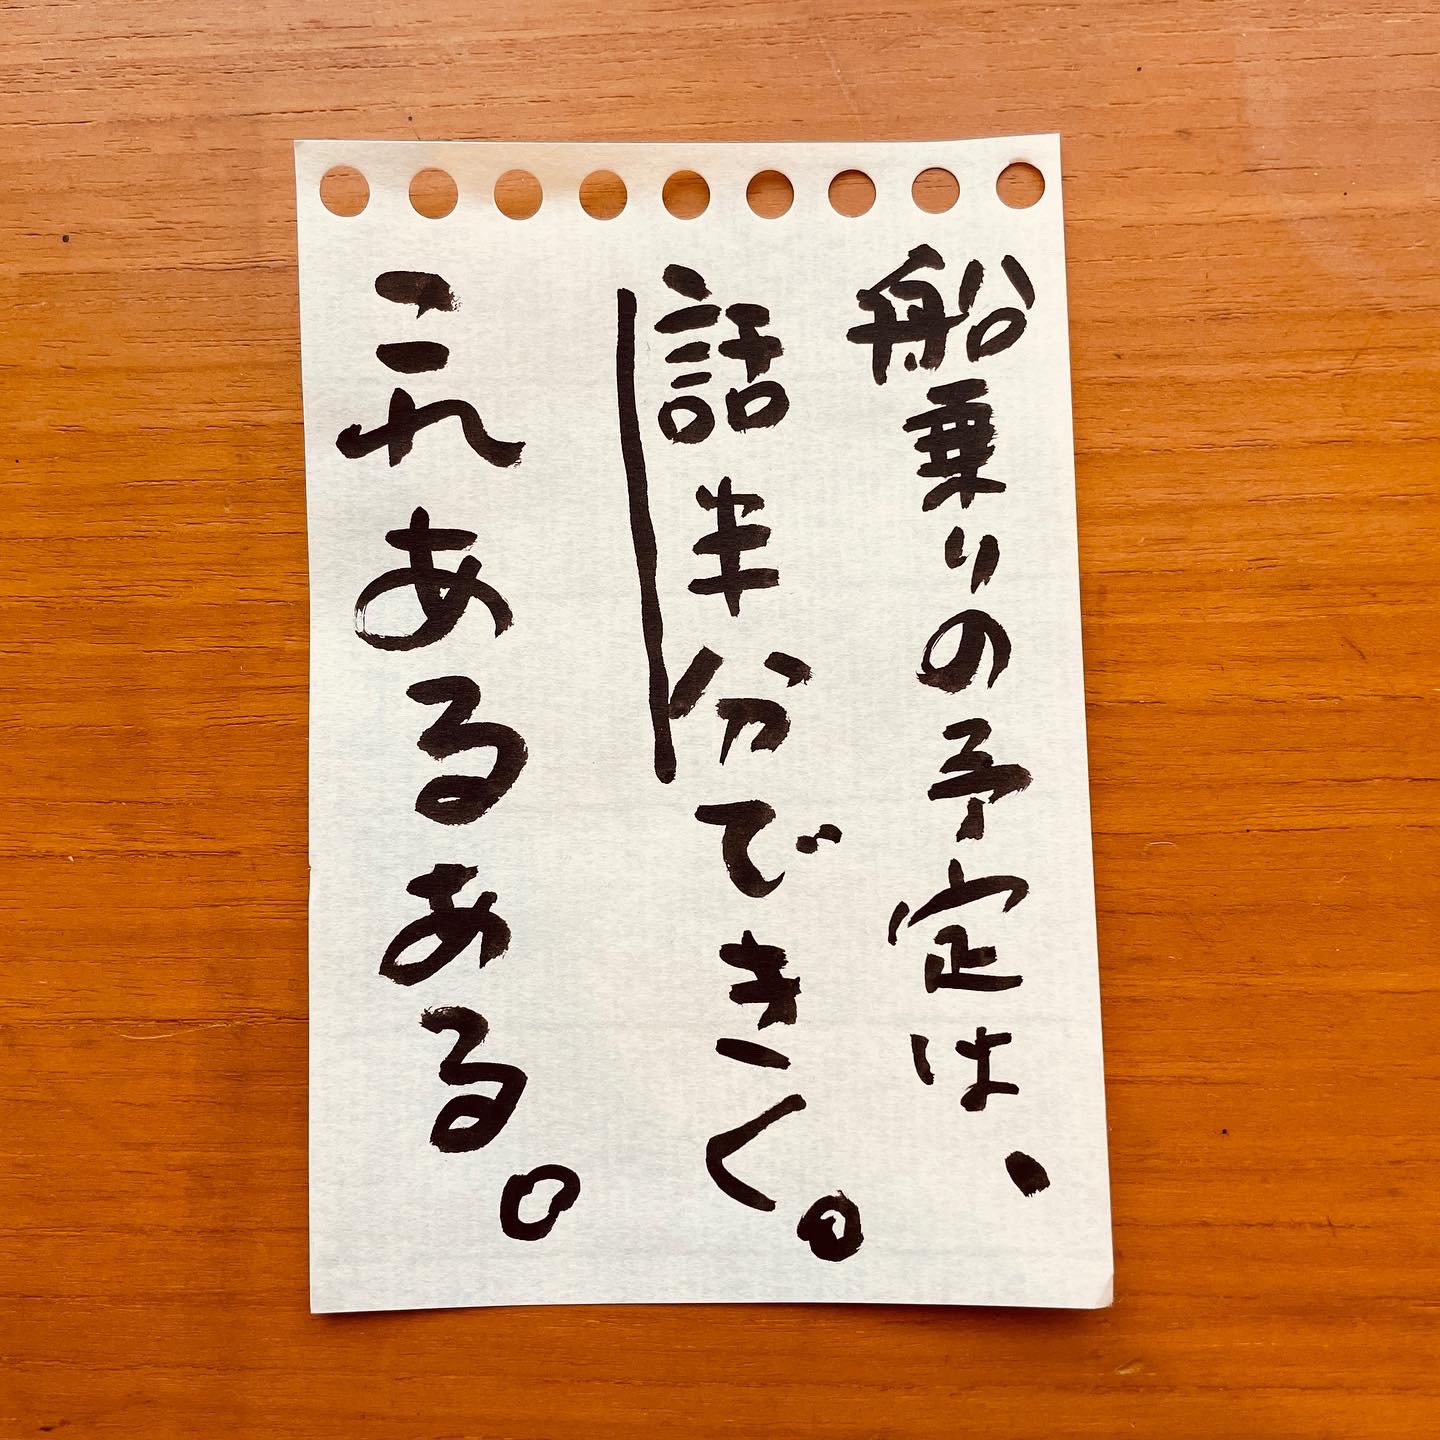 船乗りの予定は、
話半分できく。
これあるある。